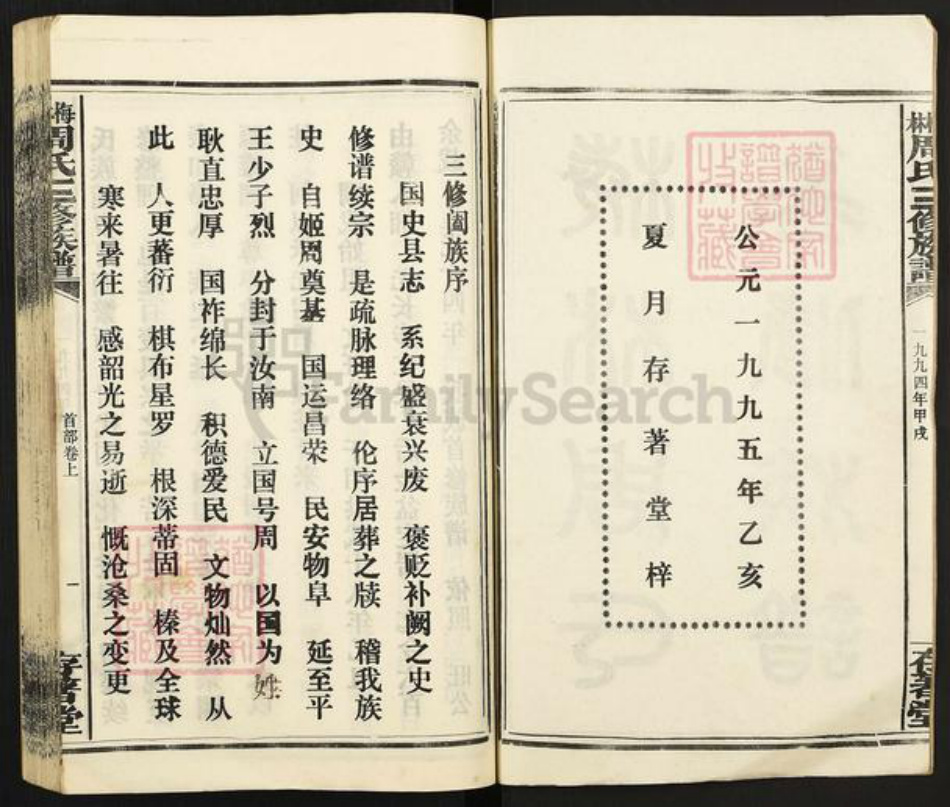 梅林周氏三修族谱
一九九四年甲戌
存著堂
公元一九九五年乙亥
夏月存著堂梓
三修阖族序
国史县志 系纪盛衰兴废 褒贬补阙之史
修谱续宗 是疏脉理络 伦序居葬之牍 稽我族
史 自姬周奠基 国运昌荣 民安物阜 延至平
王少子烈 分封于汝南 立国号周 以国为姓
耿直忠厚 国祚绵长 积德爱民 文物灿然 从
此 人更蕃衍 棋布星罗 根深蒂固 榛及全球
寒来暑往 感韶光之易逝 慨沧桑之变更
梅林周氏三修族谱
首部卷上
一
存著堂
FamilySearch